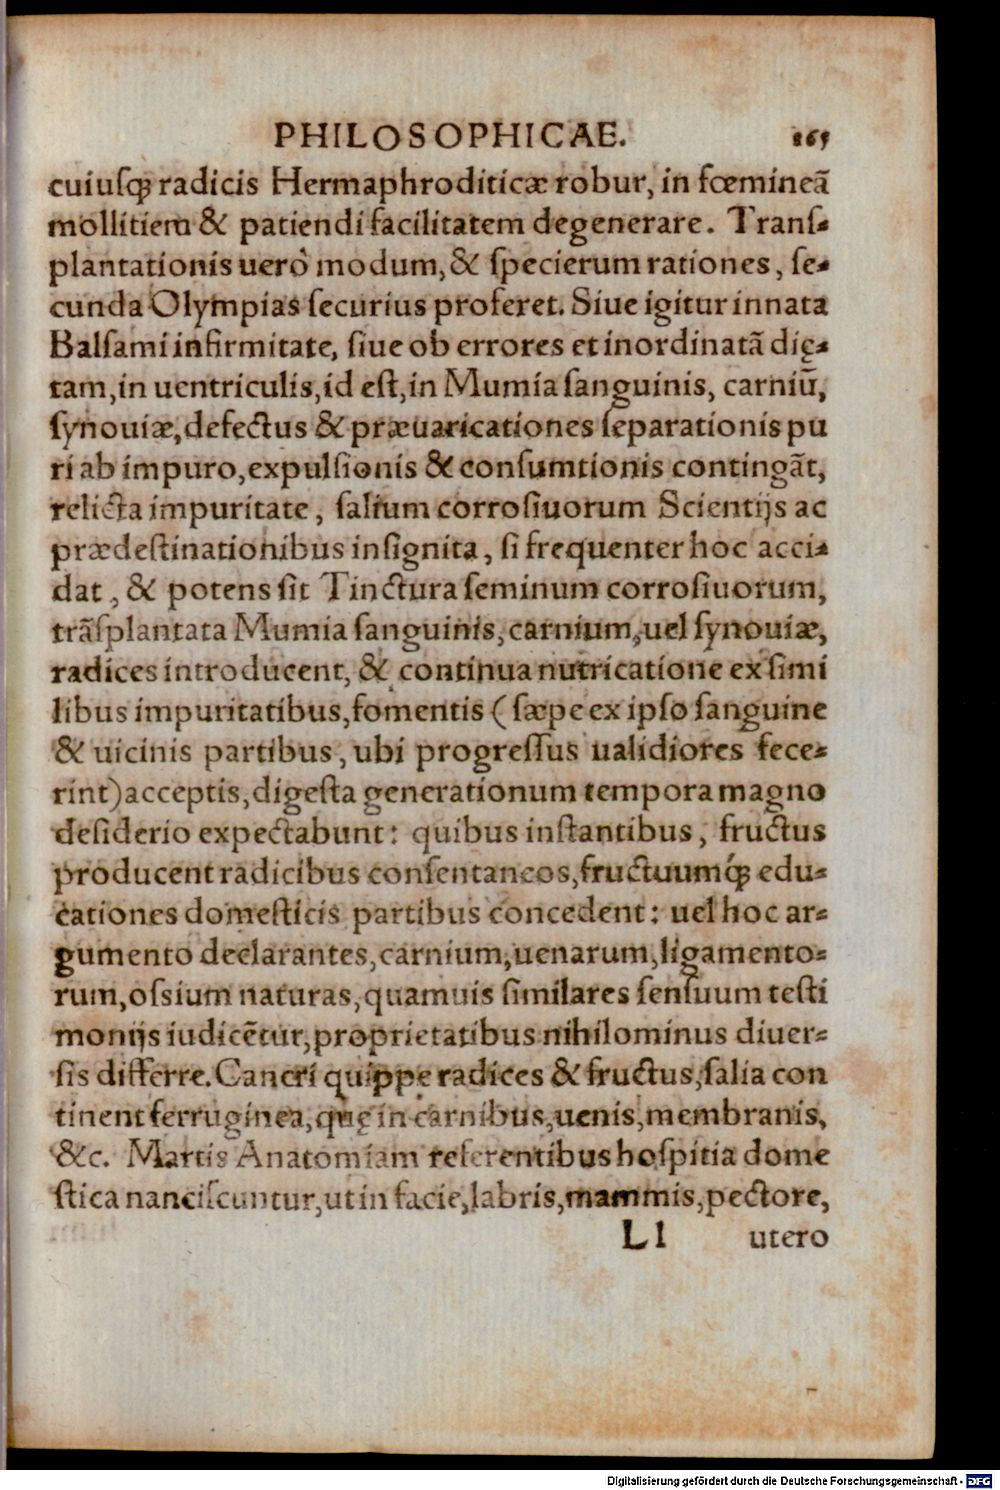 PHILOSOPHICAE. 265
cuiuſqꝫ radicis Hermaphroditicæ robur, in fœmineã
mollitiem & patiendi facilitatem degenerare. Tranſ-
plantationis uerò modum, & ſpecierum rationes, ſe-
cunda Olympias ſecurius proferet. Siue igitur innata
Balſami infirmitate, ſiue ob errores et inordinatã dię-
tam, in uentriculis, id eſt, in Mumia ſanguinis, carniũ,
ſynouiæ, defectus & præuaricationes ſeparationis pu
ri ab impuro, expulſionis & conſumtionis contingãt,
relicta impuritate, ſalium corroſiuorum Scientijs ac
prædeſtinationibus inſignita, ſi frequenter hoc acci-
dat, & potens ſit Tinctura ſeminum corroſiuorum,
trãſplantata Mumia ſanguinis, carnium, uel ſynouiæ,
radices introducent, & continua nutricatione ex ſimi
libus impuritatibus, fomentis (ſæpe ex ipſo ſanguine
& uicinis partibus, ubi progreſſus ualidiores fece-
rint) acceptis, digeſta generationum tempora magno
deſiderio expectabunt: quibus inſtantibus, fructus
producent radicibus conſentaneos, fructuumq́ꝫ edu-
cationes domeſticis partibus concedent: uel hoc ar-
gumento declarantes, carnium, uenarum, ligamento-
rum, oſsium naturas, quamuis ſimilares ſenſuum teſti
monijs iudicẽtur, proprietatibus nihilominus diuer-
ſis differre. Cancri quippe radices & fructus, ſalia con
tinent ferruginea, quę in carnibus, uenis, membranis,
&c. Martis Anatomiam referentibus hoſpitia dome
ſtica nanciſcuntur, ut in facie, labris, mammis, pectore,
Ll utero
Digitalisierung gefördert durch die Deutsche Forschungsgemeinschaft - DFG